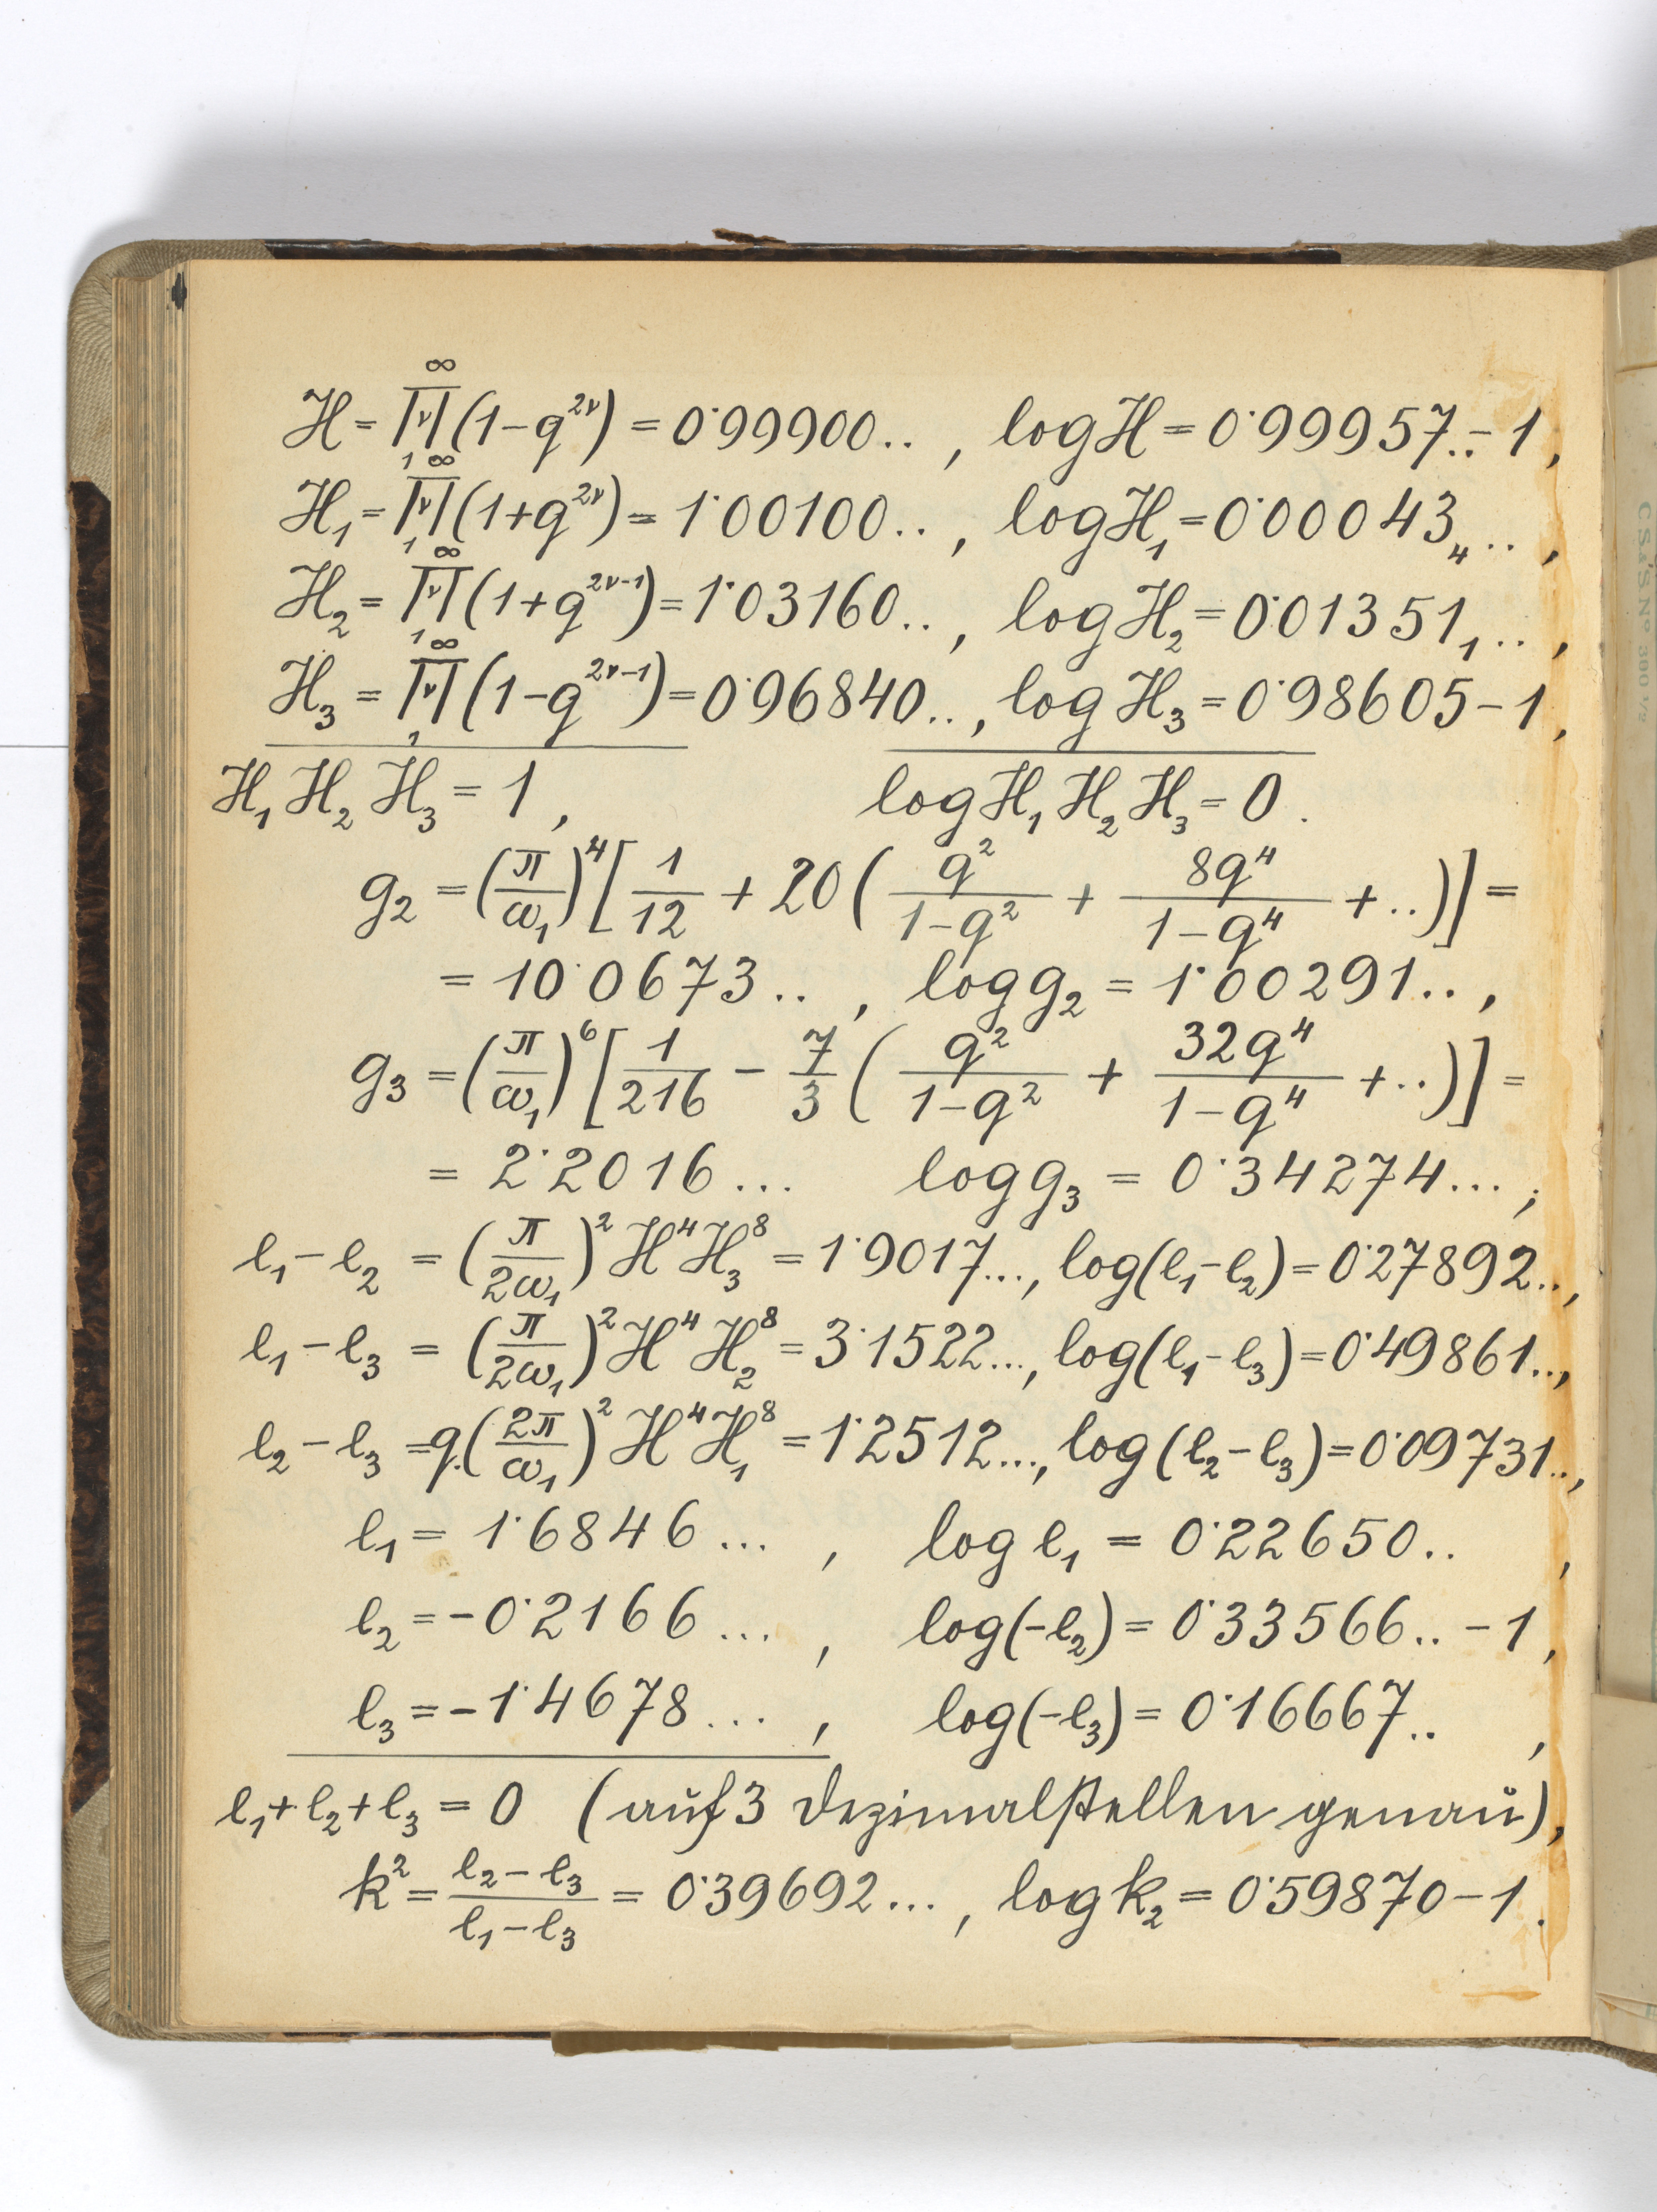 H = ∏_{ν=1}^{∞} (1-q^{2ν}) = 0·99900.. , log H = 0·99957.. - 1,
H₁ = ∏_{ν=1}^{∞} (1+q^{2ν}) = 1·00100.. , log H₁ = 0·00043₄.. ,
H₂ = ∏_{ν=1}^{∞} (1+q^{2ν-1}) = 1·03160.. , log H₂ = 0·01351₁.. ,
H₃ = ∏_{ν=1}^{∞} (1-q^{2ν-1}) = 0·96840.. , log H₃ = 0·98605 - 1,
H₁ H₂ H₃ = 1 , log H₁ H₂ H₃ = 0 .
g₂ = (π/ω₁)⁴ [1/12 + 20 (q²/(1-q²) + 8q⁴/(1-q⁴) + ..)] =
= 10·0673.. , log g₂ = 1·00291.. ,
g₃ = (π/ω₁)⁶ [1/216 - 7/3 (q²/(1-q²) + 32q⁴/(1-q⁴) + ..)] =
= 2·2016... log g₃ = 0·34274... ;
e₁ - e₂ = (π/2ω₁)² H⁴ H₃⁸ = 1·9017..., log(e₁-e₂) = 0·27892..,
e₁ - e₃ = (π/2ω₁)² H⁴ H₂⁸ = 3·1522..., log(e₁-e₃) = 0·49861..,
e₂ - e₃ = q.(2π/ω₁)² H⁴ H₁⁸ = 1·2512..., log(e₂-e₃) = 0·09731..,
e₁ = 1·6846... , log e₁ = 0·22650.. ,
e₂ = -0·2166... , log(-e₂) = 0·33566.. - 1 ,
e₃ = -1·4678... , log(-e₃) = 0·16667.. ,
e₁+e₂+e₃ = 0 (auf 3 Dezimalstellen genau),
k² = (e₂-e₃)/(e₁-e₃) = 0·39692... , log k₂ = 0·59870 - 1 .